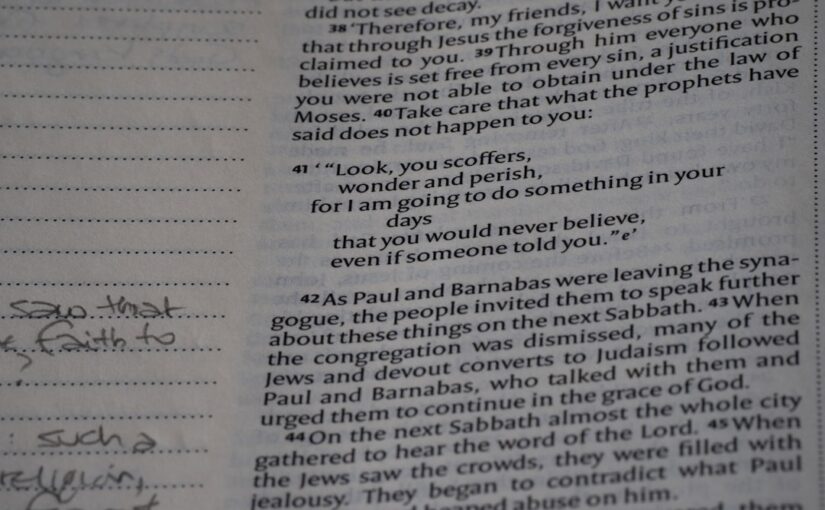 did not see decay.
38 ‘Therefore, my friends, I want
that through Jesus the forgiveness of sins is pro-
claimed to you. 39 Through him everyone who
believes is set free from every sin, a justification
you were not able to obtain under the law of
Moses. 40 Take care that what the prophets have
said does not happen to you:
41 ‘ “Look, you scoffers,
wonder and perish,
for I am going to do something in your
days
that you would never believe,
even if someone told you.” e’
42 As Paul and Barnabas were leaving the syna-
gogue, the people invited them to speak further
about these things on the next Sabbath. 43 When
the congregation was dismissed, many of the
Jews and devout converts to Judaism followed
Paul and Barnabas, who talked with them and
urged them to continue in the grace of God.
44 On the next Sabbath almost the whole city
gathered to hear the word of the Lord. 45 When
the Jews saw the crowds, they were filled with
jealousy. They began to contradict what Paul
heaped abuse on him.
saw that
faith to
?
: such a
religion,